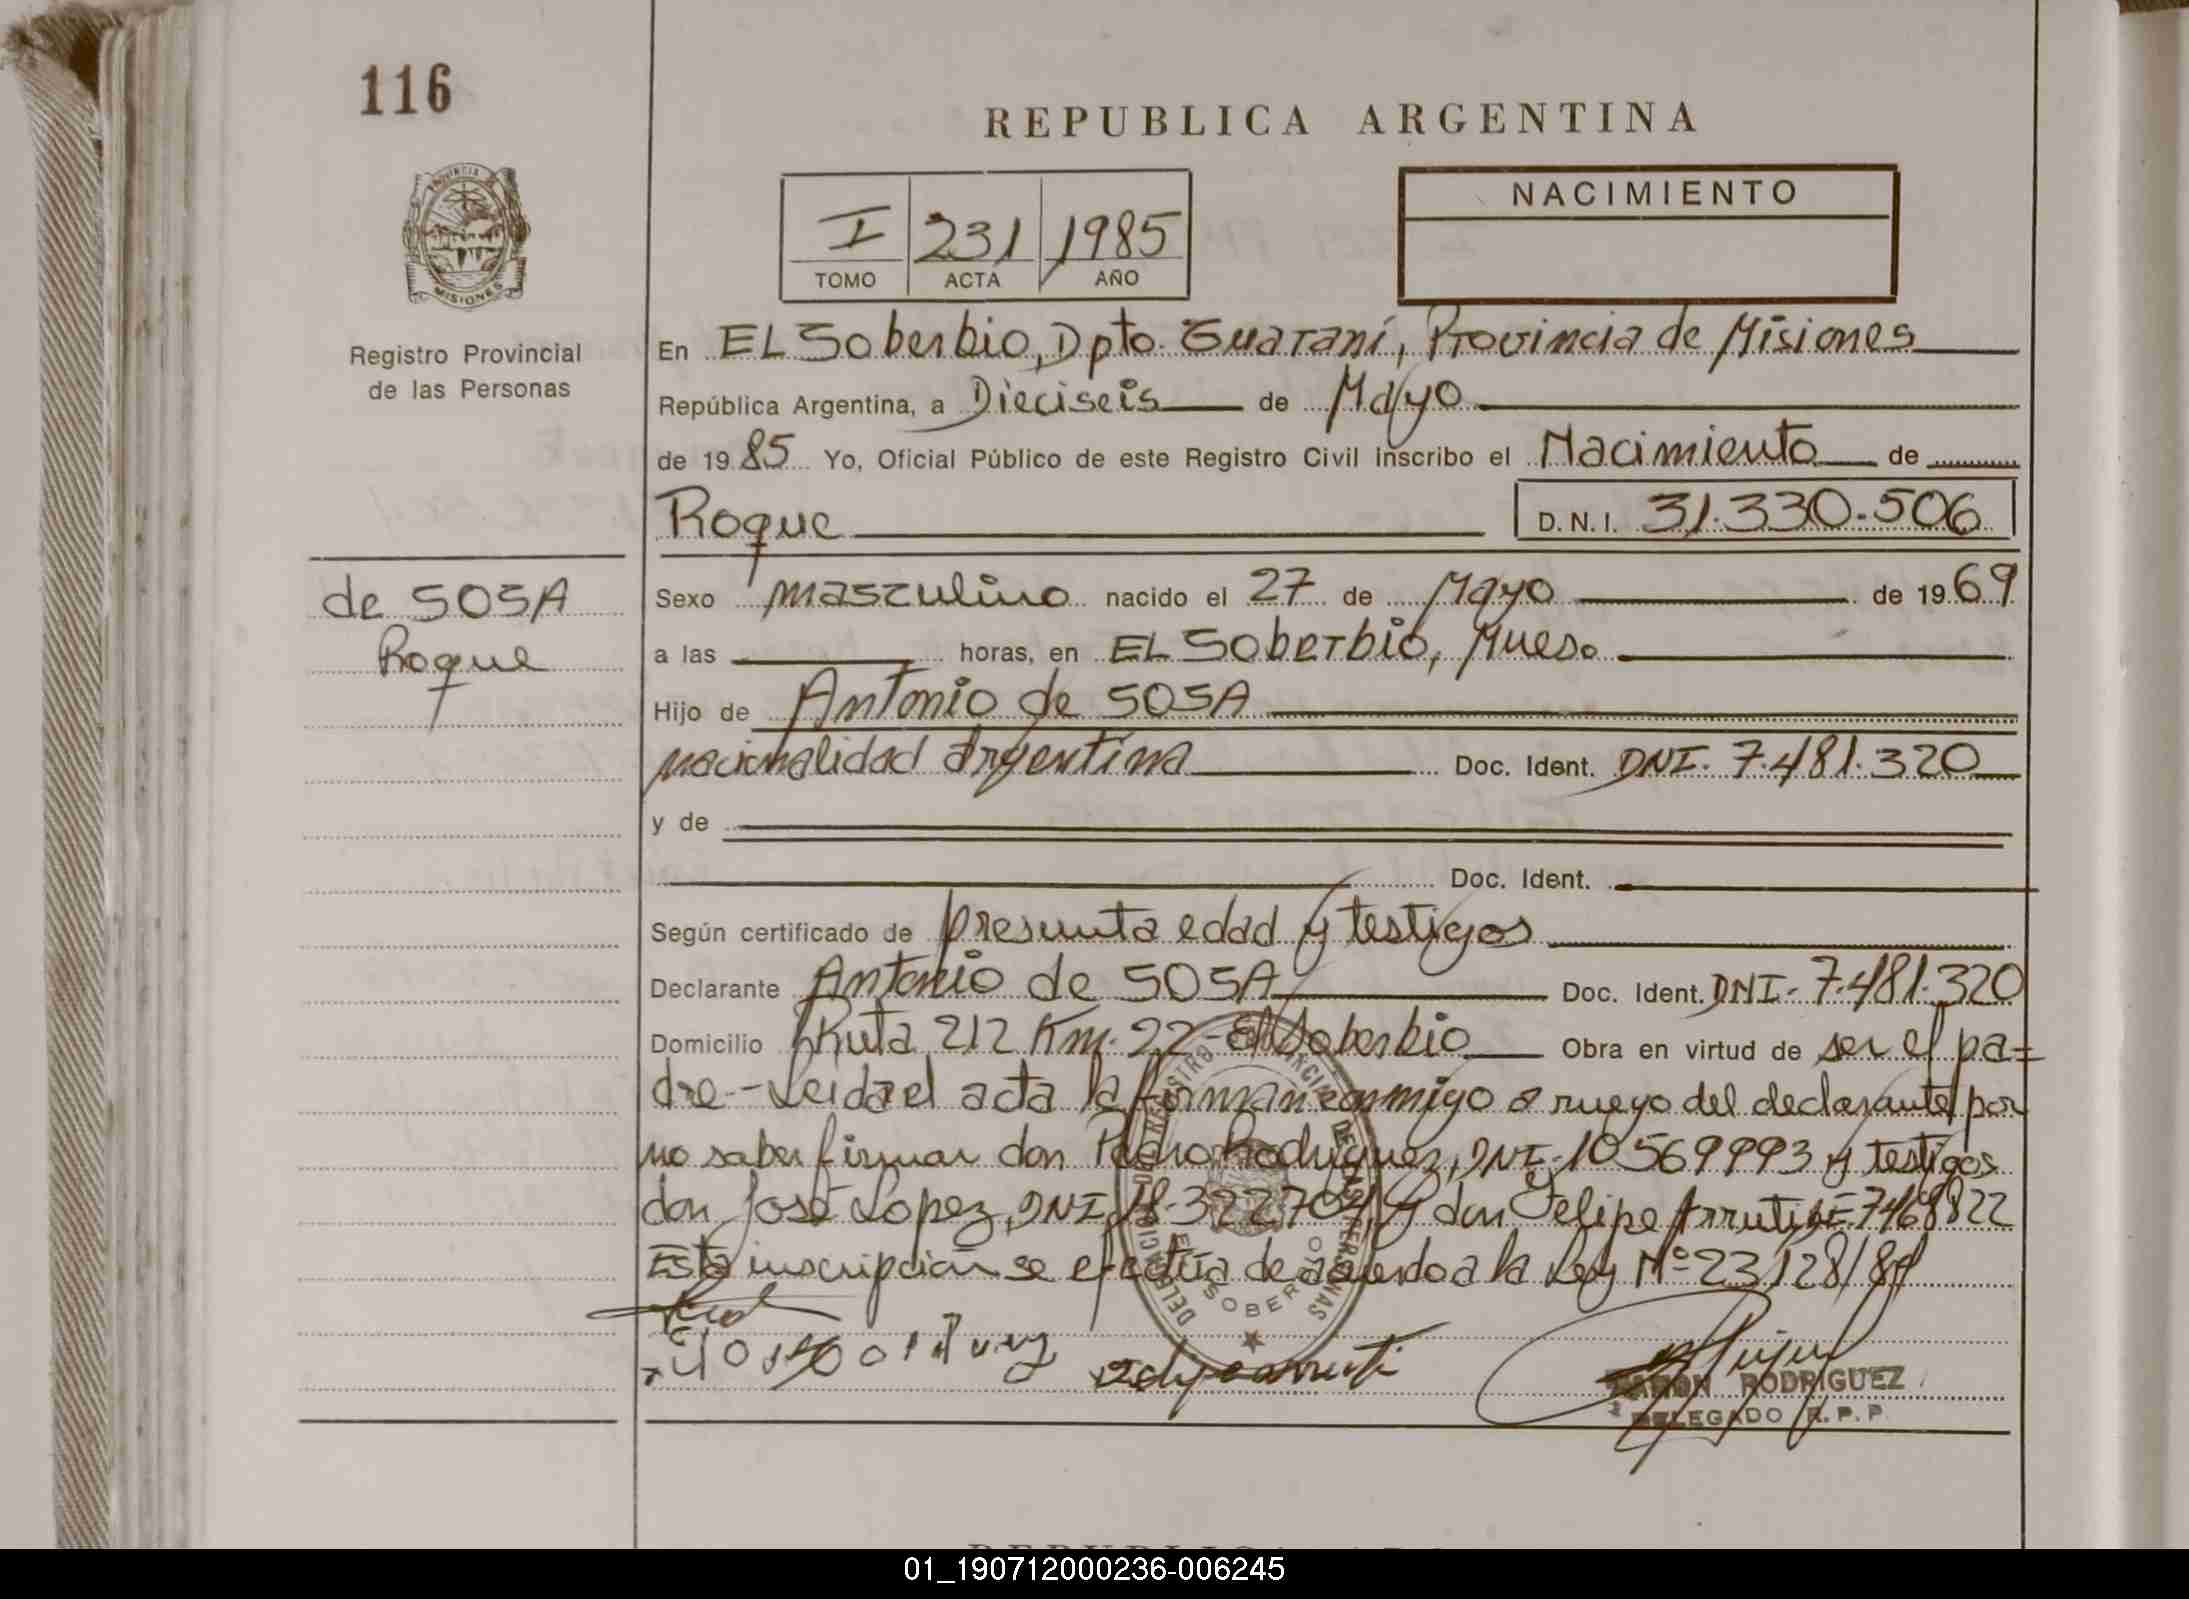 116
REPUBLICA ARGENTINA
PROVINCIA DE
MISIONES
Registro Provincial
de las Personas
I 231 1985
TOMO ACTA AÑO
NACIMIENTO
En EL Soberbio, Dpto. Guaraní, Provincia de Misiones
República Argentina, a Dieciseis de Mayo
de 1985 Yo, Oficial Público de este Registro Civil Inscribo el Nacimiento de
Roque D.N.I. 31.330.506
de SOSA
Roque
Sexo masculino nacido el 27 de Mayo de 1969
a las horas, en EL Soberbio, Mnes.
Hijo de Antonio de SOSA
nacionalidad argentina Doc. Ident. DNI. 7.481.320
y de
Doc. Ident.
Según certificado de presunta edad y testigos
Declarante Antonio de SOSA Doc. Ident. DNI. 7.481.320
Domicilio Ruta 212 Km. 22 - El Soberbio Obra en virtud de ser el pa=
dre.- Leida el acta la firman conmigo a ruego del declarante por
no saber firmar don Pedro Rodriguez, DNI. 10569993 y testigos
don José Lopez, DNI 18.322704 y don Felipe Arruti, LE. 7468822
Esta inscripción se efectúa de acuerdo a la Ley Nº 23128/84
DELEGACION REGISTRO PROVINCIAL DE LAS PERSONAS
EL SOBERBIO
RAMON RODRIGUEZ
DELEGADO R.P.P.
01_190712000236-006245